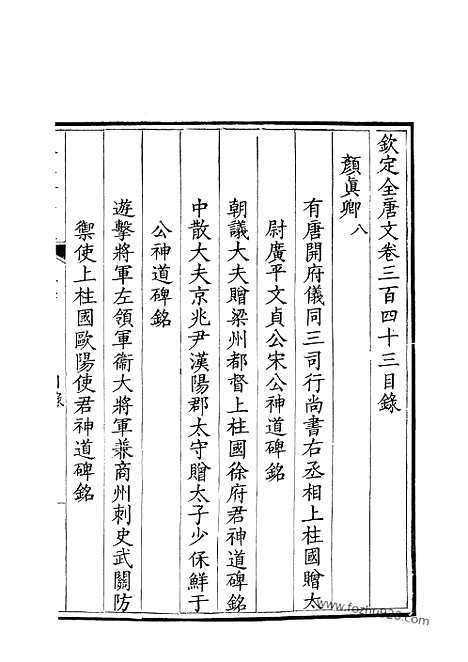 欽定全唐文卷三百四十三目錄
顏眞卿八
有唐開府儀同三司行尚書右丞相上柱國贈太
尉廣平文貞公宋公神道碑銘
朝議大夫贈梁州都督上柱國徐府君神道碑銘
中散大夫京兆尹漢陽郡太守贈太子少保鮮于
公神道碑銘
遊擊將軍左領軍衞大將軍兼商州刺史武關防
禦使上柱國歐陽使君神道碑銘
目錄
www.fozhu920.com